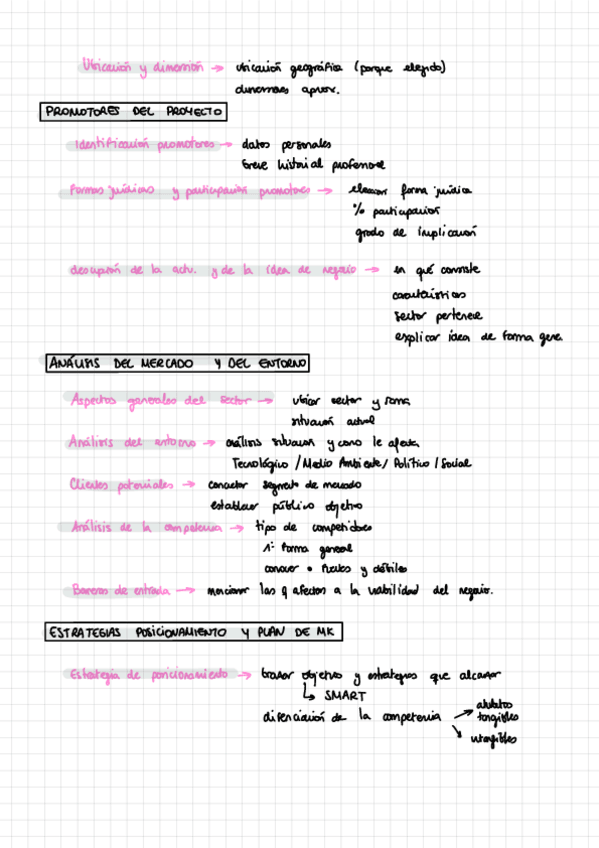 Ubicación y dimensión → ubicación geográfica (porque elegido)
dimensiones aprox.
PROMOTORES DEL PROYECTO
Identificación promotores → datos personales
breve historial profesional
Formas jurídicas y participación promotores → elección forma jurídica
% participación
grado de implicación
descripción de la actv. y de la idea de negocio → en qué consiste
características
sector pertenece
explicar idea de forma gene.
ANÁLISIS DEL MERCADO Y DEL ENTORNO
Aspectos generales del sector → ubicar sector y rama
situación actual
Análisis del entorno → análisis situación y como le afecta
Tecnológico / Medio Ambiente / Político / Social
Clientes potenciales → concretar segmento de mercado
establecer público objetivo
Análisis de la competencia → tipo de competidores
1º forma general
conocer • fuertes y débiles
Barreras de entrada → mencionar las q afectos a la viabilidad del negocio.
ESTRATEGIAS POSICIONAMIENTO Y PLAN DE MK
Estrategia de posicionamiento → trazar objetivo y estrategias que alcanzar
↳ SMART
difenciación de la competencia → atributos tangibles
↘ intangibles